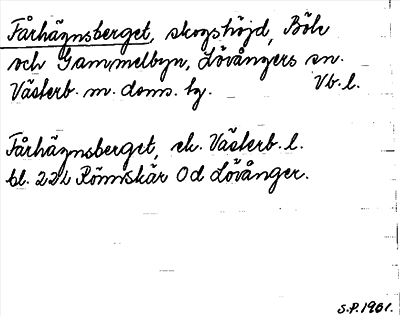 Fårhägnsberget, skogshöjd, Böle
och Gammelbyn, Lövångers sn.
Västerb. m. doms. hg. Vb. l.
Fårhägnsberget, ek. Västerb. l.
bl. 22L Rönnskär Od Lövånger.
S.P. 1961.